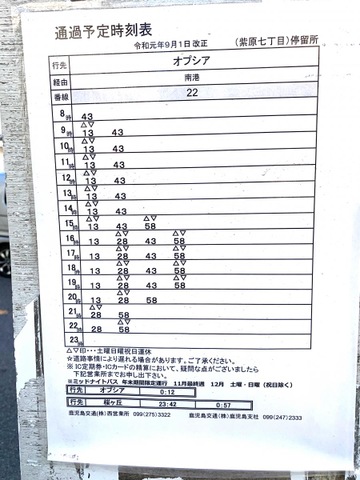 通過予定時刻表
令和元年9月1日 改正 (紫原七丁目)停留所
行先 オプシア
経由 南港
番線 22
8時 43
△▽
9時 13 43
△▽
10時 13 43
△▽
11時 13 43
△▽
12時 13 43
△▽
13時 13 43
△▽
14時 13 43
△▽ △▽
15時 13 43 58
△▽ △▽
16時 13 28 43 58
△▽ △▽
17時 13 28 43 58
△▽ △▽
18時 13 28 43 58
△▽ △▽
19時 13 28 43 58
△▽
20時 13 28 58
△▽
21時 28 58
△▽
22時 28 58
23時
△▽印・・・土曜日曜祝日運休
☆道路事情により遅れる場合があります。ご了承ください。
※ IC定期券・ICカードの精算において、疑問な点がございましたら
下記営業所までお申し出下さい。
※ミッドナイトバス 年末期間限定運行 11月最終週 12月 土曜・日曜(祝日除く)
行先 オプシア 0:12
行先 桜ヶ丘 23:42 0:57
鹿児島交通(株)西営業所 099(275)3322 鹿児島交通(株)鹿児島支社 099(247)2333